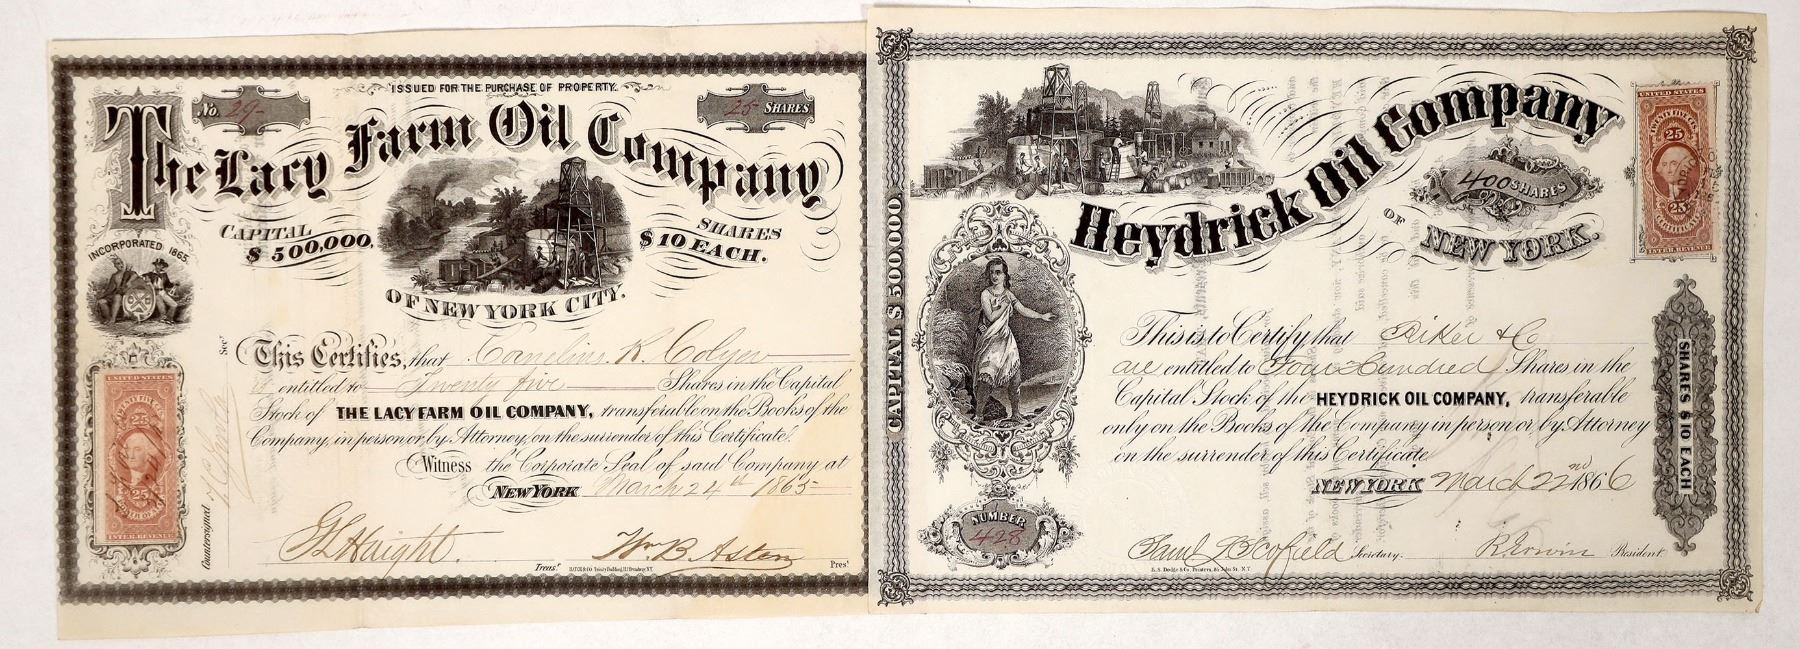 ISSUED FOR THE PURCHASE OF PROPERTY.
No. 29
25 SHARES
The Lacy Farm Oil Company
CAPITAL
$500,000,
SHARES
$10 EACH.
OF NEW YORK CITY.
INCORPORATED 1865.
This Certifies, that Cornelius R. Colyer
is entitled to Twenty five Shares in the Capital
Stock of THE LACY FARM OIL COMPANY, transferable on the Books of the
Company, in person or by Attorney, on the surrender of this Certificate.
Witness the Corporate Seal of said Company at
NEW YORK March 24th 1865
G L Haight Treasr.
Wm B. Asten Prest.
Countersigned
Secy.
HATCH & CO. Trinity Building, 111 Broadway, N.Y.
UNITED STATES
25
25
INTER. REVENUE
Heydrick Oil Company
OF NEW YORK.
400 SHARES
CAPITAL $500,000.
SHARES $10 EACH
This is to Certify that Riker & Co
are entitled to Four Hundred Shares in the
Capital Stock of the HEYDRICK OIL COMPANY, transferable
only on the Books of the Company in person or by Attorney
on the surrender of this Certificate
NEW YORK March 22nd 1866
NUMBER
428
Saml Scofield Secretary.
R Irwin President
E. S. Dodge & Co. Printers, 84 John St. N.Y.
UNITED STATES
TWENTY FIVE CTS.
25
25
CERTIFICATE
INTER. REVENUE